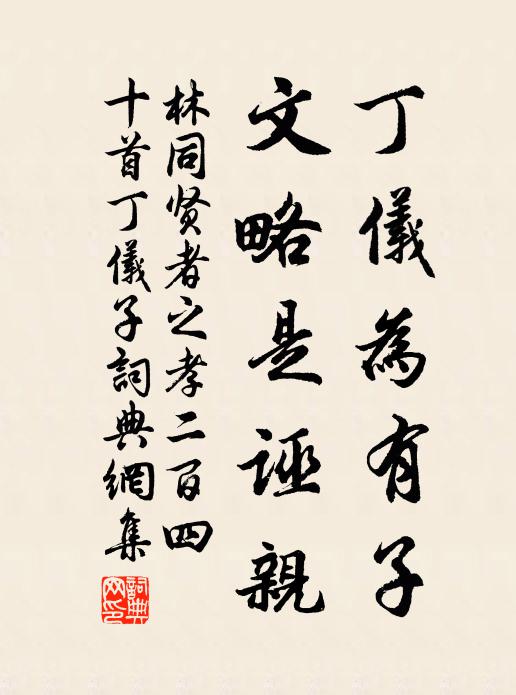 丁儀為有子
文略是誣親
林同贤者之孝二百四
十首丁儀子詞典網集
詞典
网印